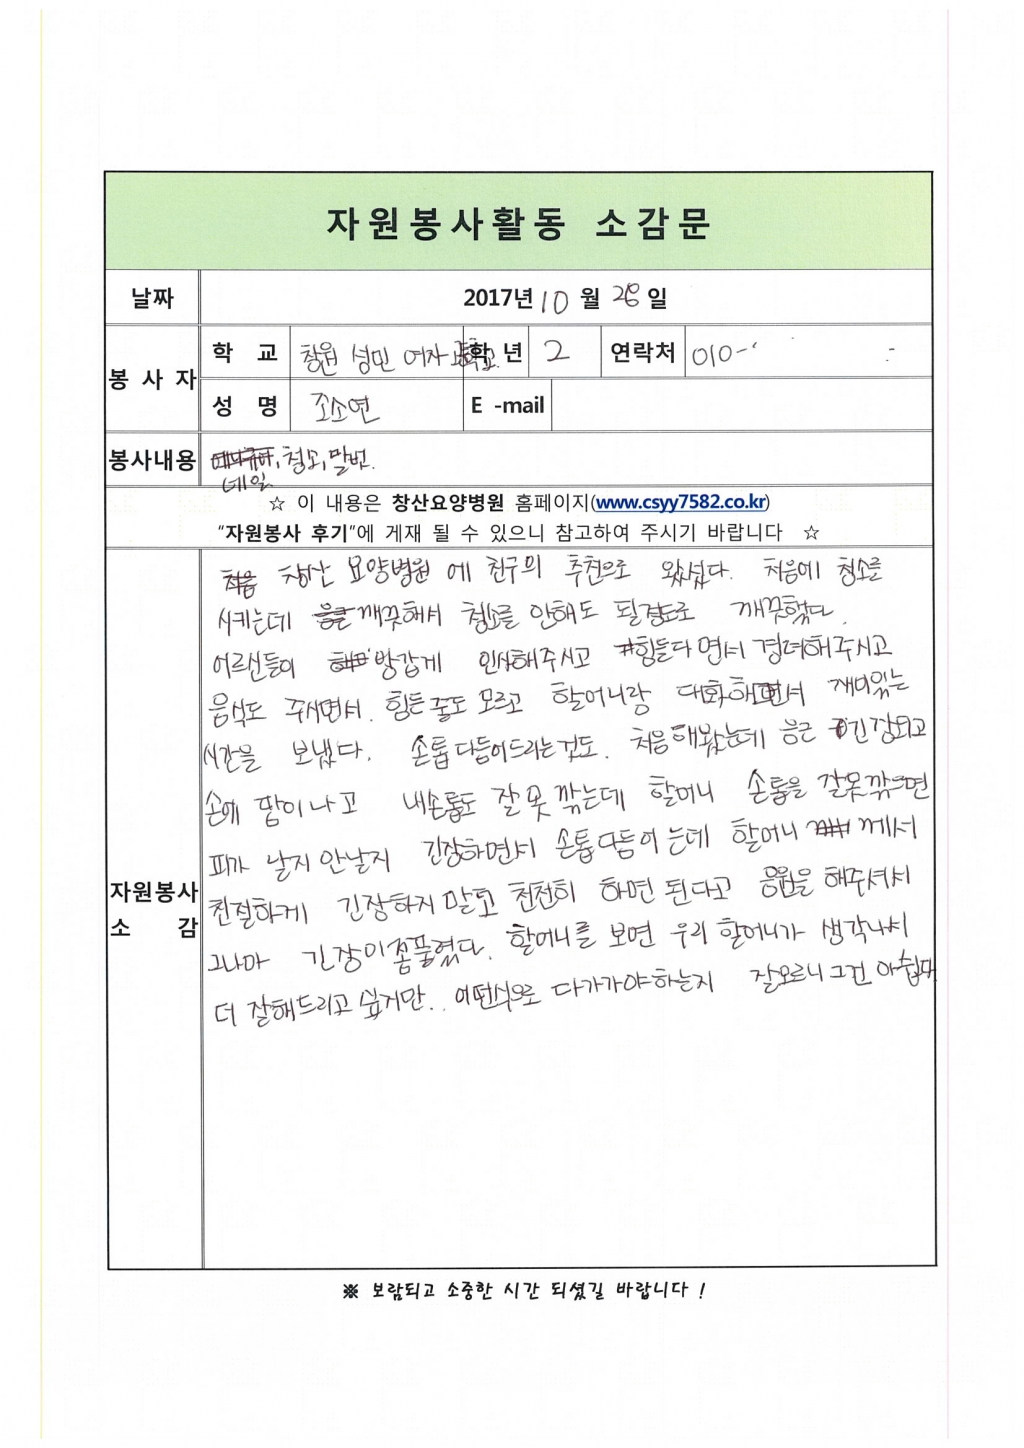 자원봉사활동 소감문
날짜 2017년 10 월 28 일
봉 사 자 학 교 창원 성민 여자고등학교 학 년 2 연락처 010-
성 명 조소연 E -mail
봉사내용 청소, 말벗.
네일
☆ 이 내용은 창산요양병원 홈페이지(www.csyy7582.co.kr)
"자원봉사 후기"에 게재 될 수 있으니 참고하여 주시기 바랍니다 ☆
자원봉사 소 감
처음 창산 요양병원 에 친구의 추천으로 왔었다. 처음에 청소를
시키는데 깨끗해서 청소를 안해도 될정도로 깨끗했다.
어르신들이 방갑게 인사해주시고 힘들다면서 격려해주시고
음식도 주시면서. 힘든줄도 모르고 할머니랑 대화하면서 재미있는
시간을 보냈다. 손톱다듬어드리는것도. 처음해봤는데 은근 긴장되고
손에 땀이나고 내손톱도 잘못깎는데 할머니 손톱을 잘못깎으면
피가 날지 안날지 긴장하면서 손톱다듬어는데 할머니 께서
친절하게 긴장하지말고 천천히 하면 된다고 응원을 해주셔서
그나마 긴장이좀풀렸다. 할머니를 보면 우리 할머니가 생각나서
더 잘해드리고 싶지만.. 어떤식으로 다가가야하는지 잘모르니 그건 아쉽다
※ 보람되고 소중한 시간 되셨길 바랍니다 !